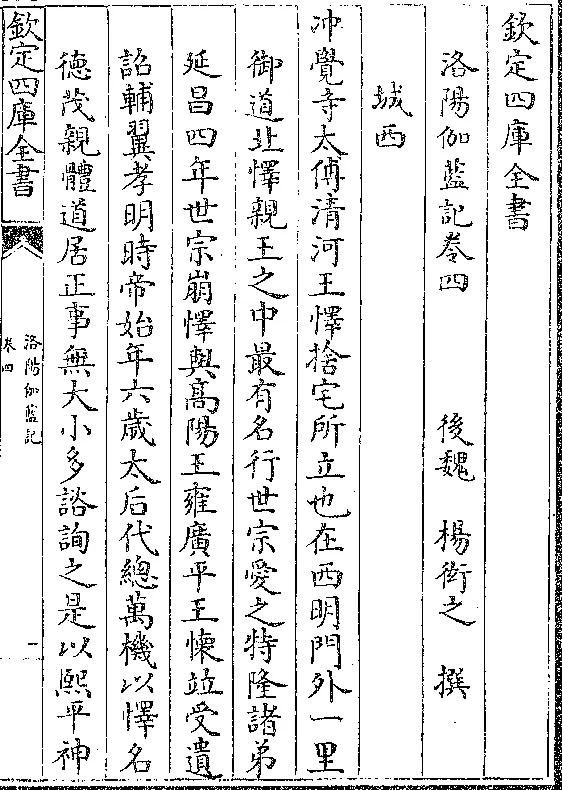 欽定四庫全書
洛陽伽藍記卷四
後魏 楊衒之 撰
城西
冲覺寺太傅清河王懌捨宅所立也在西明門外一里
御道北懌親王之中最有名行世宗愛之特隆諸弟
延昌四年世宗崩懌與高陽王雍廣平王懐竝受遺
詔輔翼孝明時帝始年六歲太后代總萬機以懌名
徳茂親體道居正事無大小多諮詢之是以熈平神
欽定四庫全書
洛陽伽藍記
卷四
一